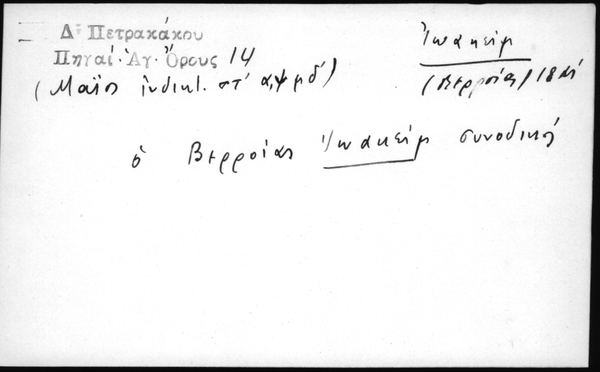 Δ. Πετρακάκου
Πηγαί Ἁγ. Ὄρους 14
(Μαΐου ἰνδικτ. στ´ ͵αψμδ´)
Ἰωακείμ
(Βερροίας) 18
ὁ Βερροίας Ἰωακείμ συνοδικός